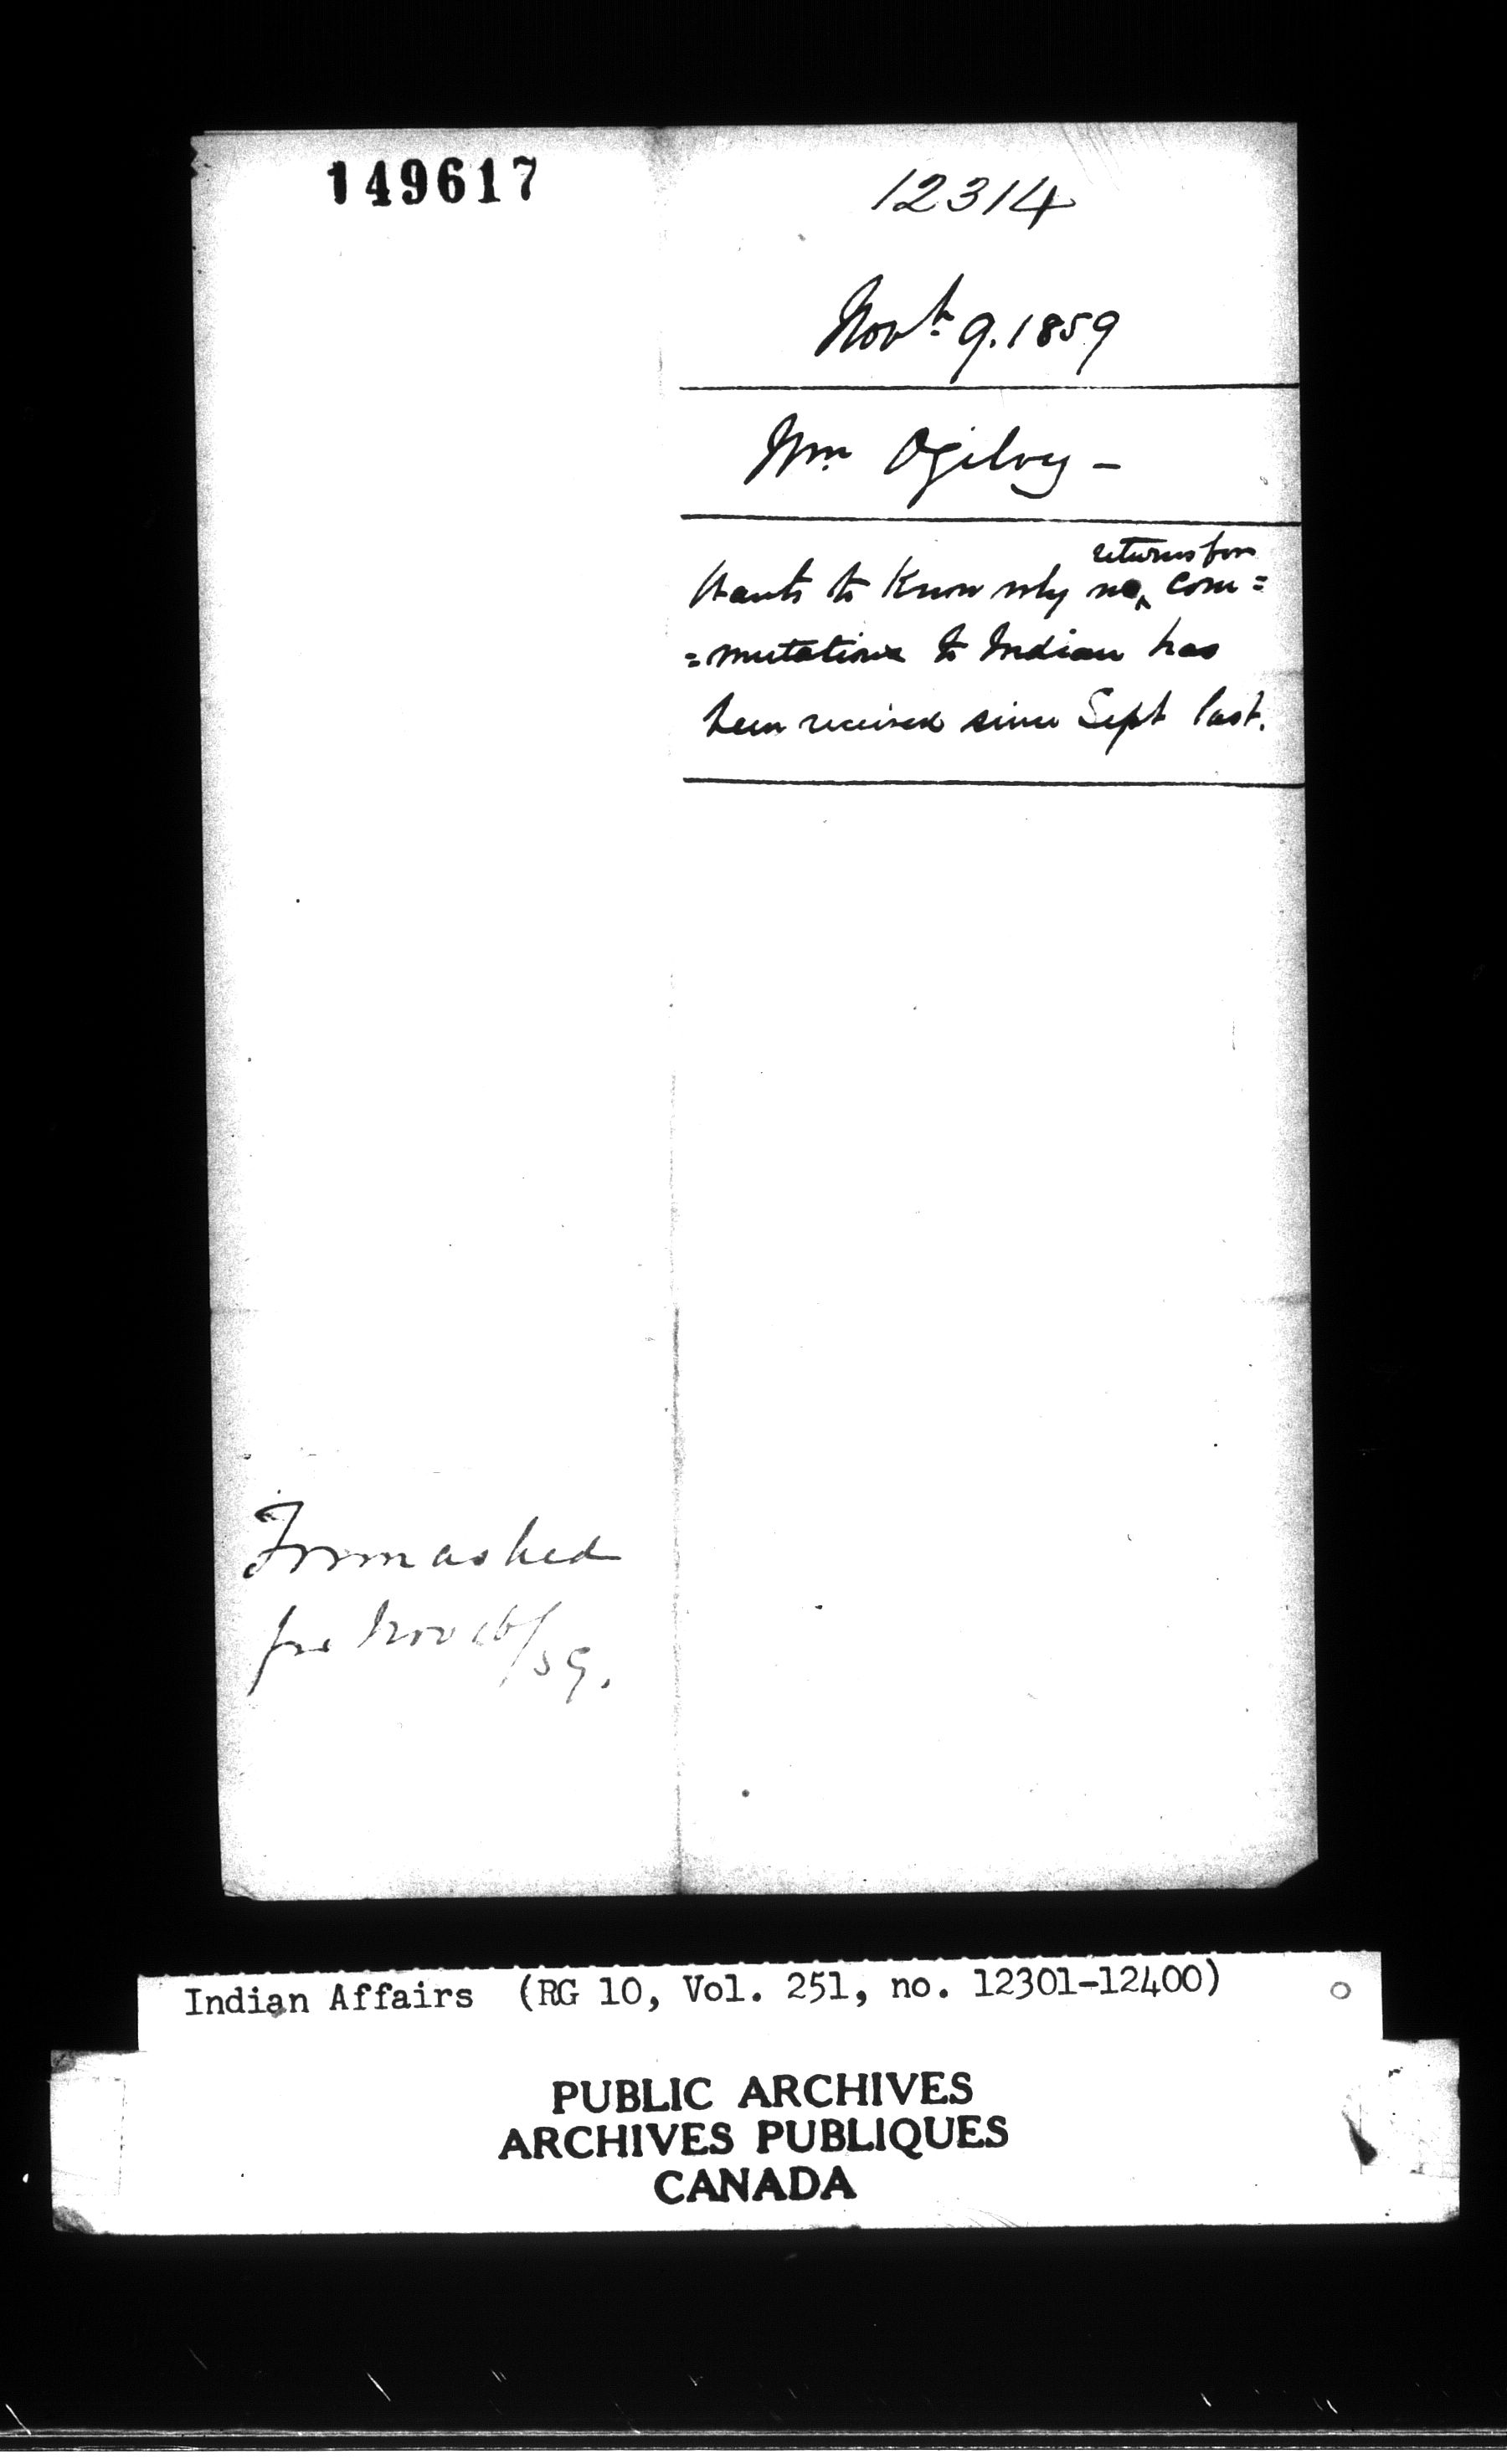 149617
12314
Novr. 9. 1859
Wm. Ogilvy –
Wants to Know why no returns for com=
=mutation to Indian has
been received since Sept last.
Form asked
for Nov 16/59.
Indian Affairs (RG 10, Vol. 251, no. 12301-12400)
PUBLIC ARCHIVES
ARCHIVES PUBLIQUES
CANADA